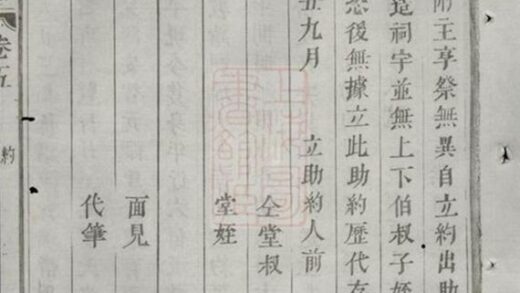 附主享祭無異自立約出助
造祠宇並無上下伯叔子姪
恐後無據立此助約歷代存
丑九月 立助約人前
仝堂叔
堂姪
面見
代筆
卷五 約